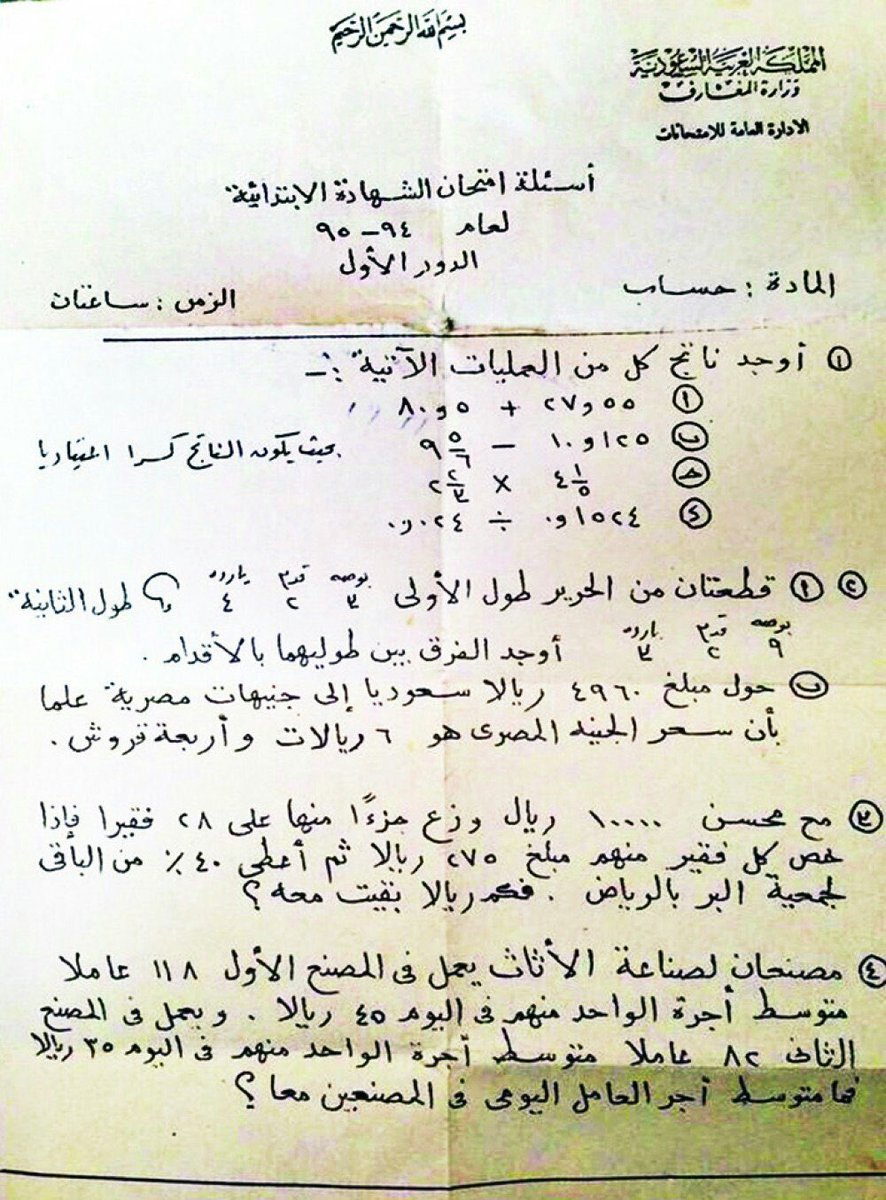 بسم الله الرحمن الرحيم
المملكة العربية السعودية
وزارة المعارف
الادارة العامة للامتحانات
أسئلة امتحان الشهادة الابتدائية
لعام ٩٤ – ٩٥
الدور الأول
المادة : حساب الزمن : ساعتان
١ أوجد ناتج كل من العمليات الآتية :ـ
أ ٥٥و٢٧ + ٥و٨٠
ب ١٢٥و١٠ – ٩ ٥/٦ بحيث يكون الناتج كسرا اعتياديا
جـ ٤ ١/٥ × ٢ ٢/٣
د ١٥٢٤و٠ ÷ ٠٢٤و٠
٢ أ قطعتان من الحرير طول الأولى ٣ بوصه ٢ قدم ٤ يارده و طول الثانية
٩ بوصه ٢ قدم ٣ يارده أوجد الفرق بين طوليهما بالأقدام .
ب حول مبلغ ٤٩٦٠ ريالا سعوديا إلى جنيهات مصرية علما
بأن سعر الجنيه المصرى هو ٦ ريالات وأربعة قروش .
٣ مع محسن ١٠٠٠٠ ريال وزع جزءًا منها على ٢٨ فقيرا فإذا
خص كل فقير منهم مبلغ ٢٧٥ ريالا ثم أعطى ٤٠ ٪ من الباقى
لجمعية البر بالرياض . فكم ريالا بقيت معه ؟
٤ مصنعان لصناعة الأثاث يعمل فى المصنع الأول ١١٨ عاملا
متوسط أجرة الواحد منهم فى اليوم ٤٥ ريالا . ويعمل فى المصنع
الثانى ٨٢ عاملا متوسط أجرة الواحد منهم فى اليوم ٣٥ ريالا
فما متوسط أجر العامل اليومى فى المصنعين معا ؟